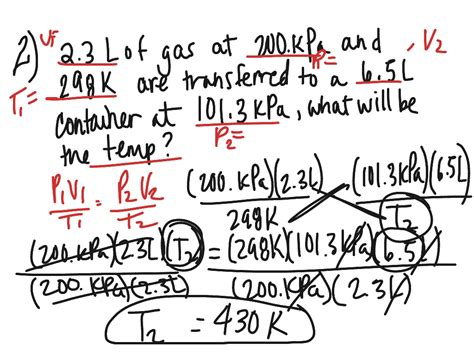 2) V₁ 2.3 L of gas at 200. kPa and , V₂
P₁=
T₁= 298K are transferred to a 6.5L
container at 101.3 kPa, what will be
P₂=
the temp?
P₁V₁/T₁ = P₂V₂/T₂
(200. kPa)(2.3L)/298K (101.3 kPa)(6.5L)/T₂
(200. kPa)(2.3L)(T₂)/(200. kPa)(2.3L) = (298K)(101.3 kPa)(6.5L)/(200. kPa)(2.3L)
T₂ = 430 K